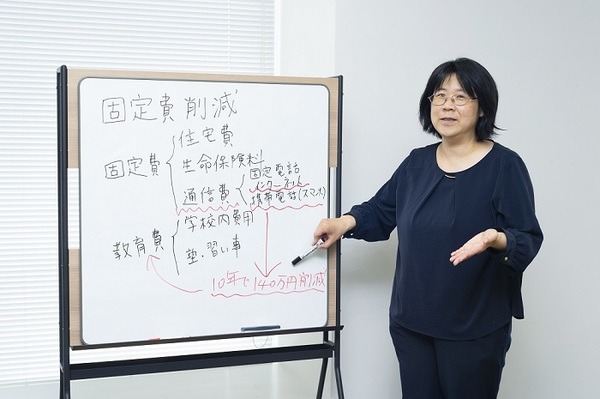 固定費削減
固定費
住宅費
生命保険料
通信費
固定電話
インターネット
携帯電話(スマホ)
教育費
学校内費用
塾・習い車
10年で140万円削減